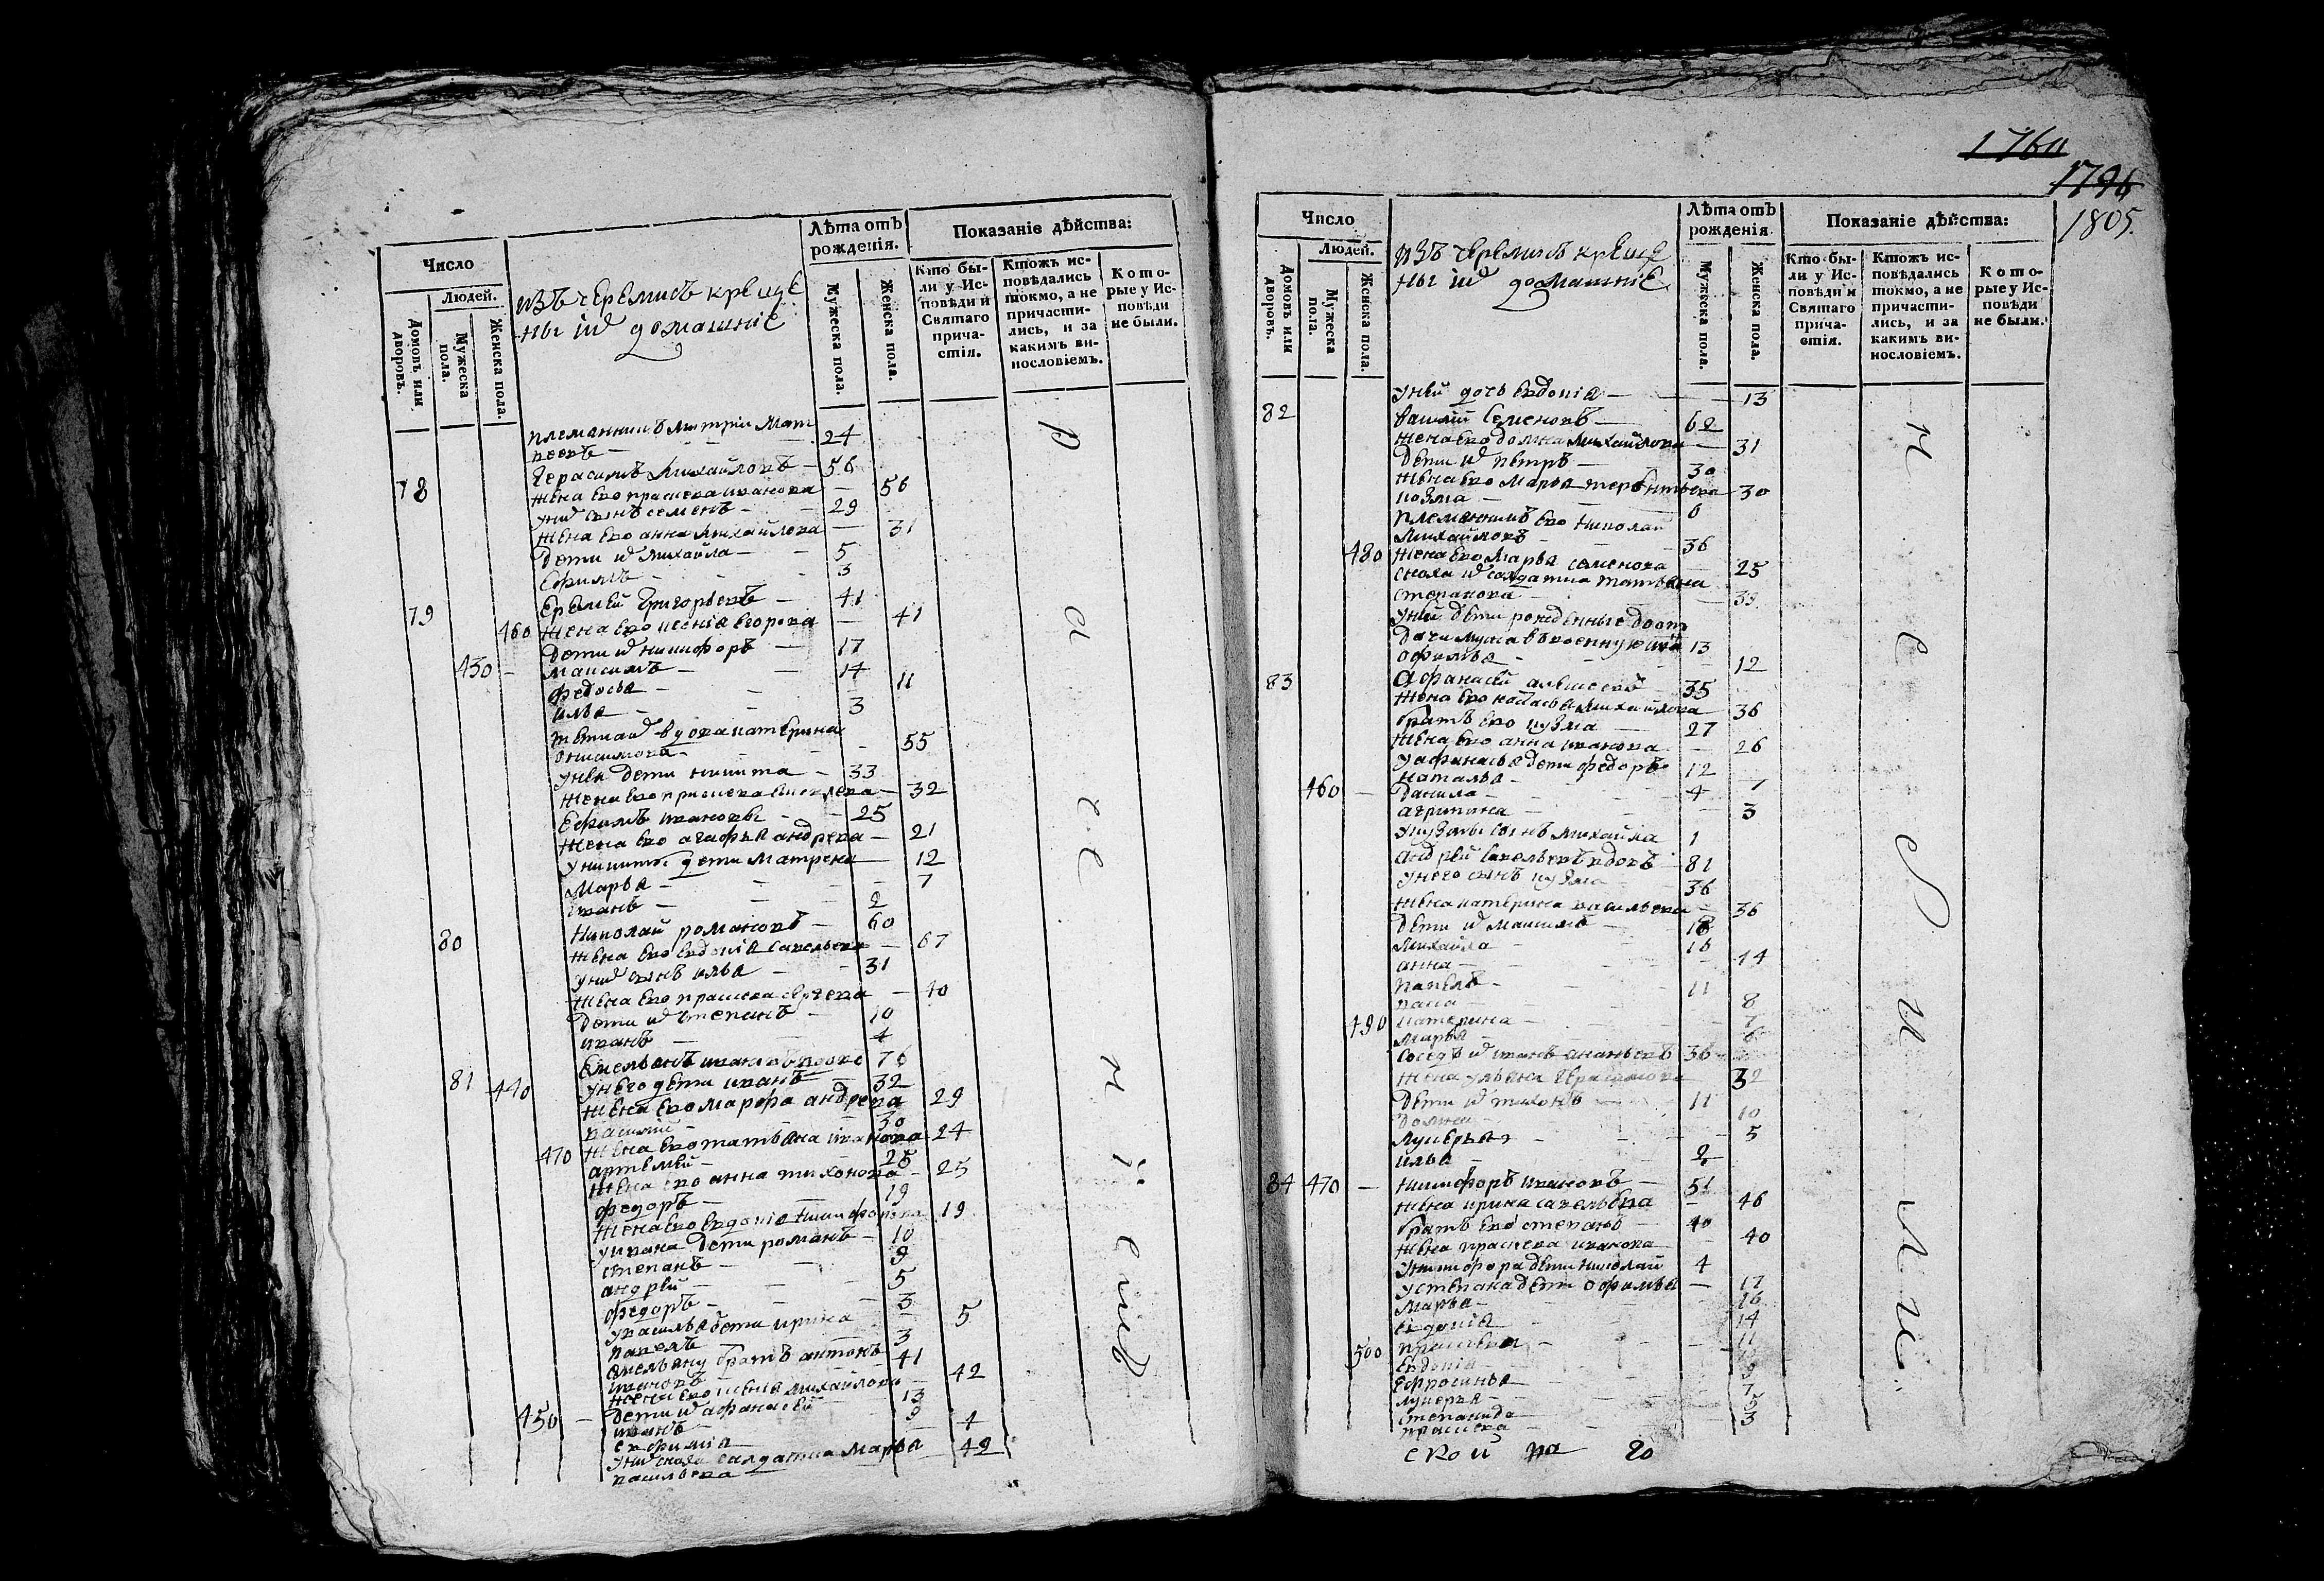 Число
Людей.
Домовъ или дворовъ.
Мужеска пола.
Женска пола.
изъ черемисъ креще
ны ихъ домашніе
Лѣта отъ рожденія.
Мужеска пола.
Женска пола.
Показаніе дѣйства:
Кто бы-
ли у Ис-
повѣди и
Святаго
прича-
стія.
Ктожъ ис-
повѣдались
токмо, а не
причасти-
лись, и за
какимъ ви-
нословіемъ.
Кото-
рые у Ис-
повѣди
не были.
племянникъ дмитріи мат
веевъ — 24
78 Герасимъ михайловъ — 56
жена ево праскева иванова — 56
у них сынъ семенъ — 29
жена ево анна михайлова — 31
дети их михайла — 5
Ефимъ — 3
79 Еремей Григорьевъ — 41
460 жена ево ксенія егорова — 41
дети их никифоръ — 17
430 — максимъ — 14
федосья — 11
илья — 3
вдова катерина
онисимова — 55
у нея дети никита — 33
жена ево праскева — 32
Ефимъ ивановы — 25
жена ево агафья андреева — 21
у никиты дети матрена — 12
марья — 7
иванъ — 2
80 Николай романовъ — 60
жена ево евдокія савельева — 67
у них сынъ илья — 31
жена ево праскева сергеева — 40
дети их степанъ — 10
иванъ — 4
81 440 Емельянъ ивановъ вдовъ 76
у него дети иванъ — 32
жена ево марфа андреева 29
василий — 30
470 жена ево татьяна иванова 24
артемей — 25
жена ево анна тихонова — 25
федоръ — 19
жена ево евдокія никифорова 19
у ивана дети романъ — 10
степанъ — 9
андрей — 5
федоръ — 3
у василья дети ирина 5
павелъ — 3
емельяну братъ антонъ
ивановъ — 41
жена ево ксенія михайлова 42
450 — дети их афанасей 13
иванъ — 9
евфимія — 4
у них сноха салдатка марья
васильева 42
р а с с н і е м ъ
1760
1796
1805.
Число
Людей.
Домовъ или дворовъ.
Мужеска пола.
Женска пола.
изъ черемисъ креще
ны ихъ домашніе
Лѣта отъ рожденія.
Мужеска пола.
Женска пола.
Показаніе дѣйства:
Кто бы-
ли у Ис-
повѣди и
Святаго
прича-
стія.
Ктожъ ис-
повѣдались
токмо, а не
причасти-
лись, и за
какимъ ви-
нословіемъ.
Кото-
рые у Ис-
повѣди
не были.
у ней дочь евдокія — 13
82 василій семеновъ — 62
жена ево домна михайлова — 31
дети их петръ — 30
жена ево марья терентьева 30
козма — 6
племянникъ ево николай
михайловъ — 36
480 жена ево марья семенова — 25
сноха их салдатка татьяна
степанова — 39
у ней дети рожденные до от
дачи мужа в военную 13
офимья — 12
83 Афанасей алексеевъ 35
жена ево михайлова 36
братъ ево кузма — 27
жена ево анна иванова — 26
у афанасья дети федоръ 12
наталья — 7
460 — данила — 4
агрипина — 3
у кузмы сынъ михайла 1
андрей савельевъ вдовъ 81
у него сынъ кузма — 36
жена катерина васильева — 36
дети их максимъ — 18
михайла — 16
анна — 14
павелъ — 11
8
490 катерина — 7
марья — 6
соседъ их иванъ ананьевъ 36
жена ульяна герасимова 32
дети их тихонъ — 11
домна — 10
лукерья — 5
илья — 2
84 470 — никифоръ ивановъ — 51
жена ирина савельева — 46
братъ ево степанъ — 40
жена праскева иванова — 40
у никифора дети николай 4
у степана дети офимья — 17
марья — 16
евдокія — 14
500 праскева — 11
евдокія — 9
ефросинья — 7
лукерья — 5
степанида — 3
праскева —
н е с л и л и.
ской по 20